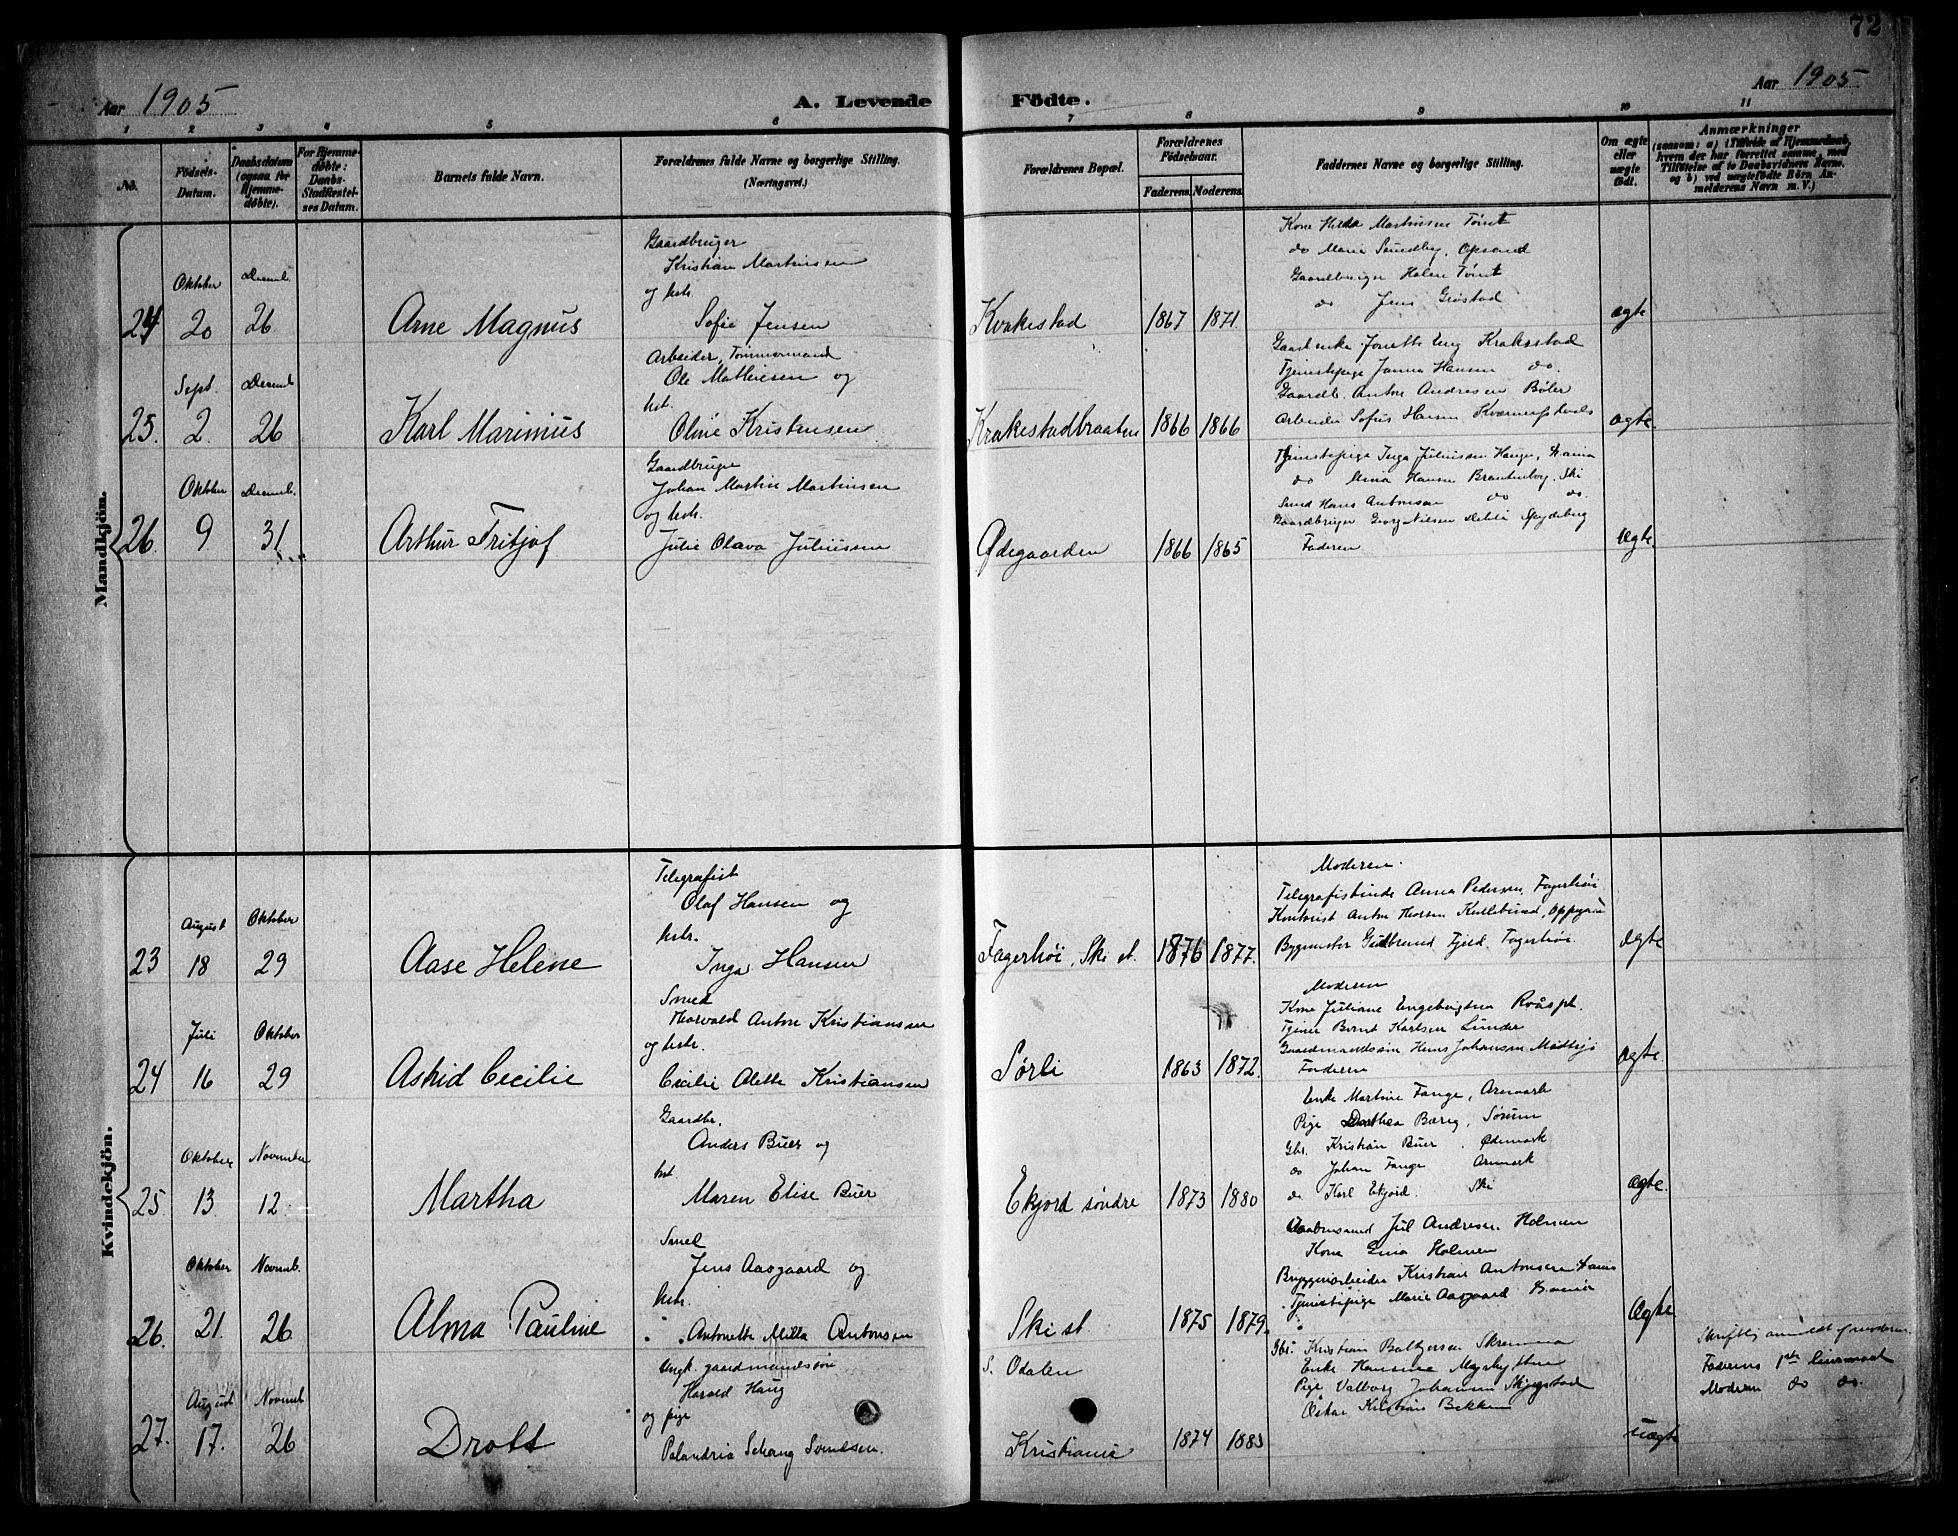 72
Aar 1905
A. Levende Födte.
Aar 1905
1 2 3 4 5 6 7 8 9 10 11
No.
Födsels-Datum.
Daabsdatum (ogsaa for Hjemme-döbte).
For Hjemme-döbte: Daabs-Stadfæstel-ses Datum.
Barnets fulde Navn.
Forældrenes fulde Navne og borgerlige Stilling. (Næringsvei.)
Forældrenes Bopæl.
Forældrenes Födselsaar.
Faderens. Moderens.
Faddernes Navne og borgerlige Stilling.
Om ægte eller uægte födt.
Anmærkninger
(saasom: a) i Tilfælde af Hjemmedaab, hvem der har forrettet samme, med Tilföielse af to Daabsvidners Navne, og b) ved uægtefödte Börn An-melderens Navn m. V.)
Mandkjön.
24 Oktober 20 Decemb. 26
Arne Magnus
Gaardbruger
Kristian Martinsen
og hstr.
Sofie Jensen
Krakestad
1867 1871
Kone Hilda Martinsen Tømt
do Marie Sundby, Opsand
Gaardbruger Halvor Tømt
do Jens Grøstad
ægte
25. Sept. 2. Decemb. 26
Karl Marinius
Arbeider, Tømmermand
Ole Mathiesen og
hst.
Oline Kristensen
Krakestadbraaten
1866 1866
Gaardenke Jonette Eng Krakstad
Tjenestepige Janna Hansen do.
Gaardb. Anton Andresen Bøler
Arbeider Sofus Hansen
ægte
26. Oktober 9 Decemb. 31
Arthur Fritjof
Gaardbruger
Johan Martin Martinsen
og hstr.
Julie Olava Juliussen
Ødegaarden
1866 1865
Tjenestepige Inga Juliussen Hauge,
do Mina Hansen Brandenborg, Ski
Smed Hans Antonsen do do.
Gaardbruger Georg Nilsen Spydeberg
Faderen
Ægte.
Kvindekjön.
23 August 18 Oktober 29
Aase Helene
Telegrafist
Olaf Hansen og
hstr.
Inga Hansen
Fagerhøi, Ski st.
1876 1877.
Moderen.
Telegrafistinde Anna Pedersen, Fagerhøi
Kontorist Anton Thorsen Kullebund, Oppegaard
Bygmester Gudbrand Fjeld, Fagerhøi
Ægte
24 Juli 16 Oktober 29
Astrid Cecilie
Smed
Thorvald Anton Kristiansen
og hstr.
Cecilie Alette Kristiansen
Sørli
1863 1872.
Moderen
Kone Juliane Engebrigtsen Raaspl.
Tjener Bernt Karlsen Lunder
Gaardmandssøn Hans Johansen
Faderen
Ægte.
25 Oktober 13. November 12
Martha
Gaardbr.
Anders Buer og
hst.
Maren Elise Buer
Ekjord søndre
1873 1880
Enke Martine Fange, Aremark
Pige Dorthea Bærig, Sørum
Gbr. Kristian Buer, Ødemark
do Johan Fange Aremark
do Karl Ekjord. Ski
Ægte.
26. Oktober 21. Novemb. 26
Alma Pauline
Smed
Jens Aasgaard og
hstr.
Antonette Milla Antonsen
Ski st
1875 1879.
Jul Andresen Holmen
Kone Lina Holmen
Bryggeriarbeider Kristian Antonsen
Tjenestepige Marie Aasgaard
Ægte
27. August 17. Novemb. 26
Drott
Ungk. gaardmandssøn
Harald Haug
og pige
Palandria Solveig Svendsen.
S. Odalen
Kristiania
1874 1883
Gbr. Kristian Baltzersen Skrenna
Enke Hansine Myrbysten
Pige Valborg Johansen Skjegstad
Oskar Kristian Bekken
uægte
Skriftlig anmeldt af moderen.
Faderens 1ste leiermaal
Moderen do do.